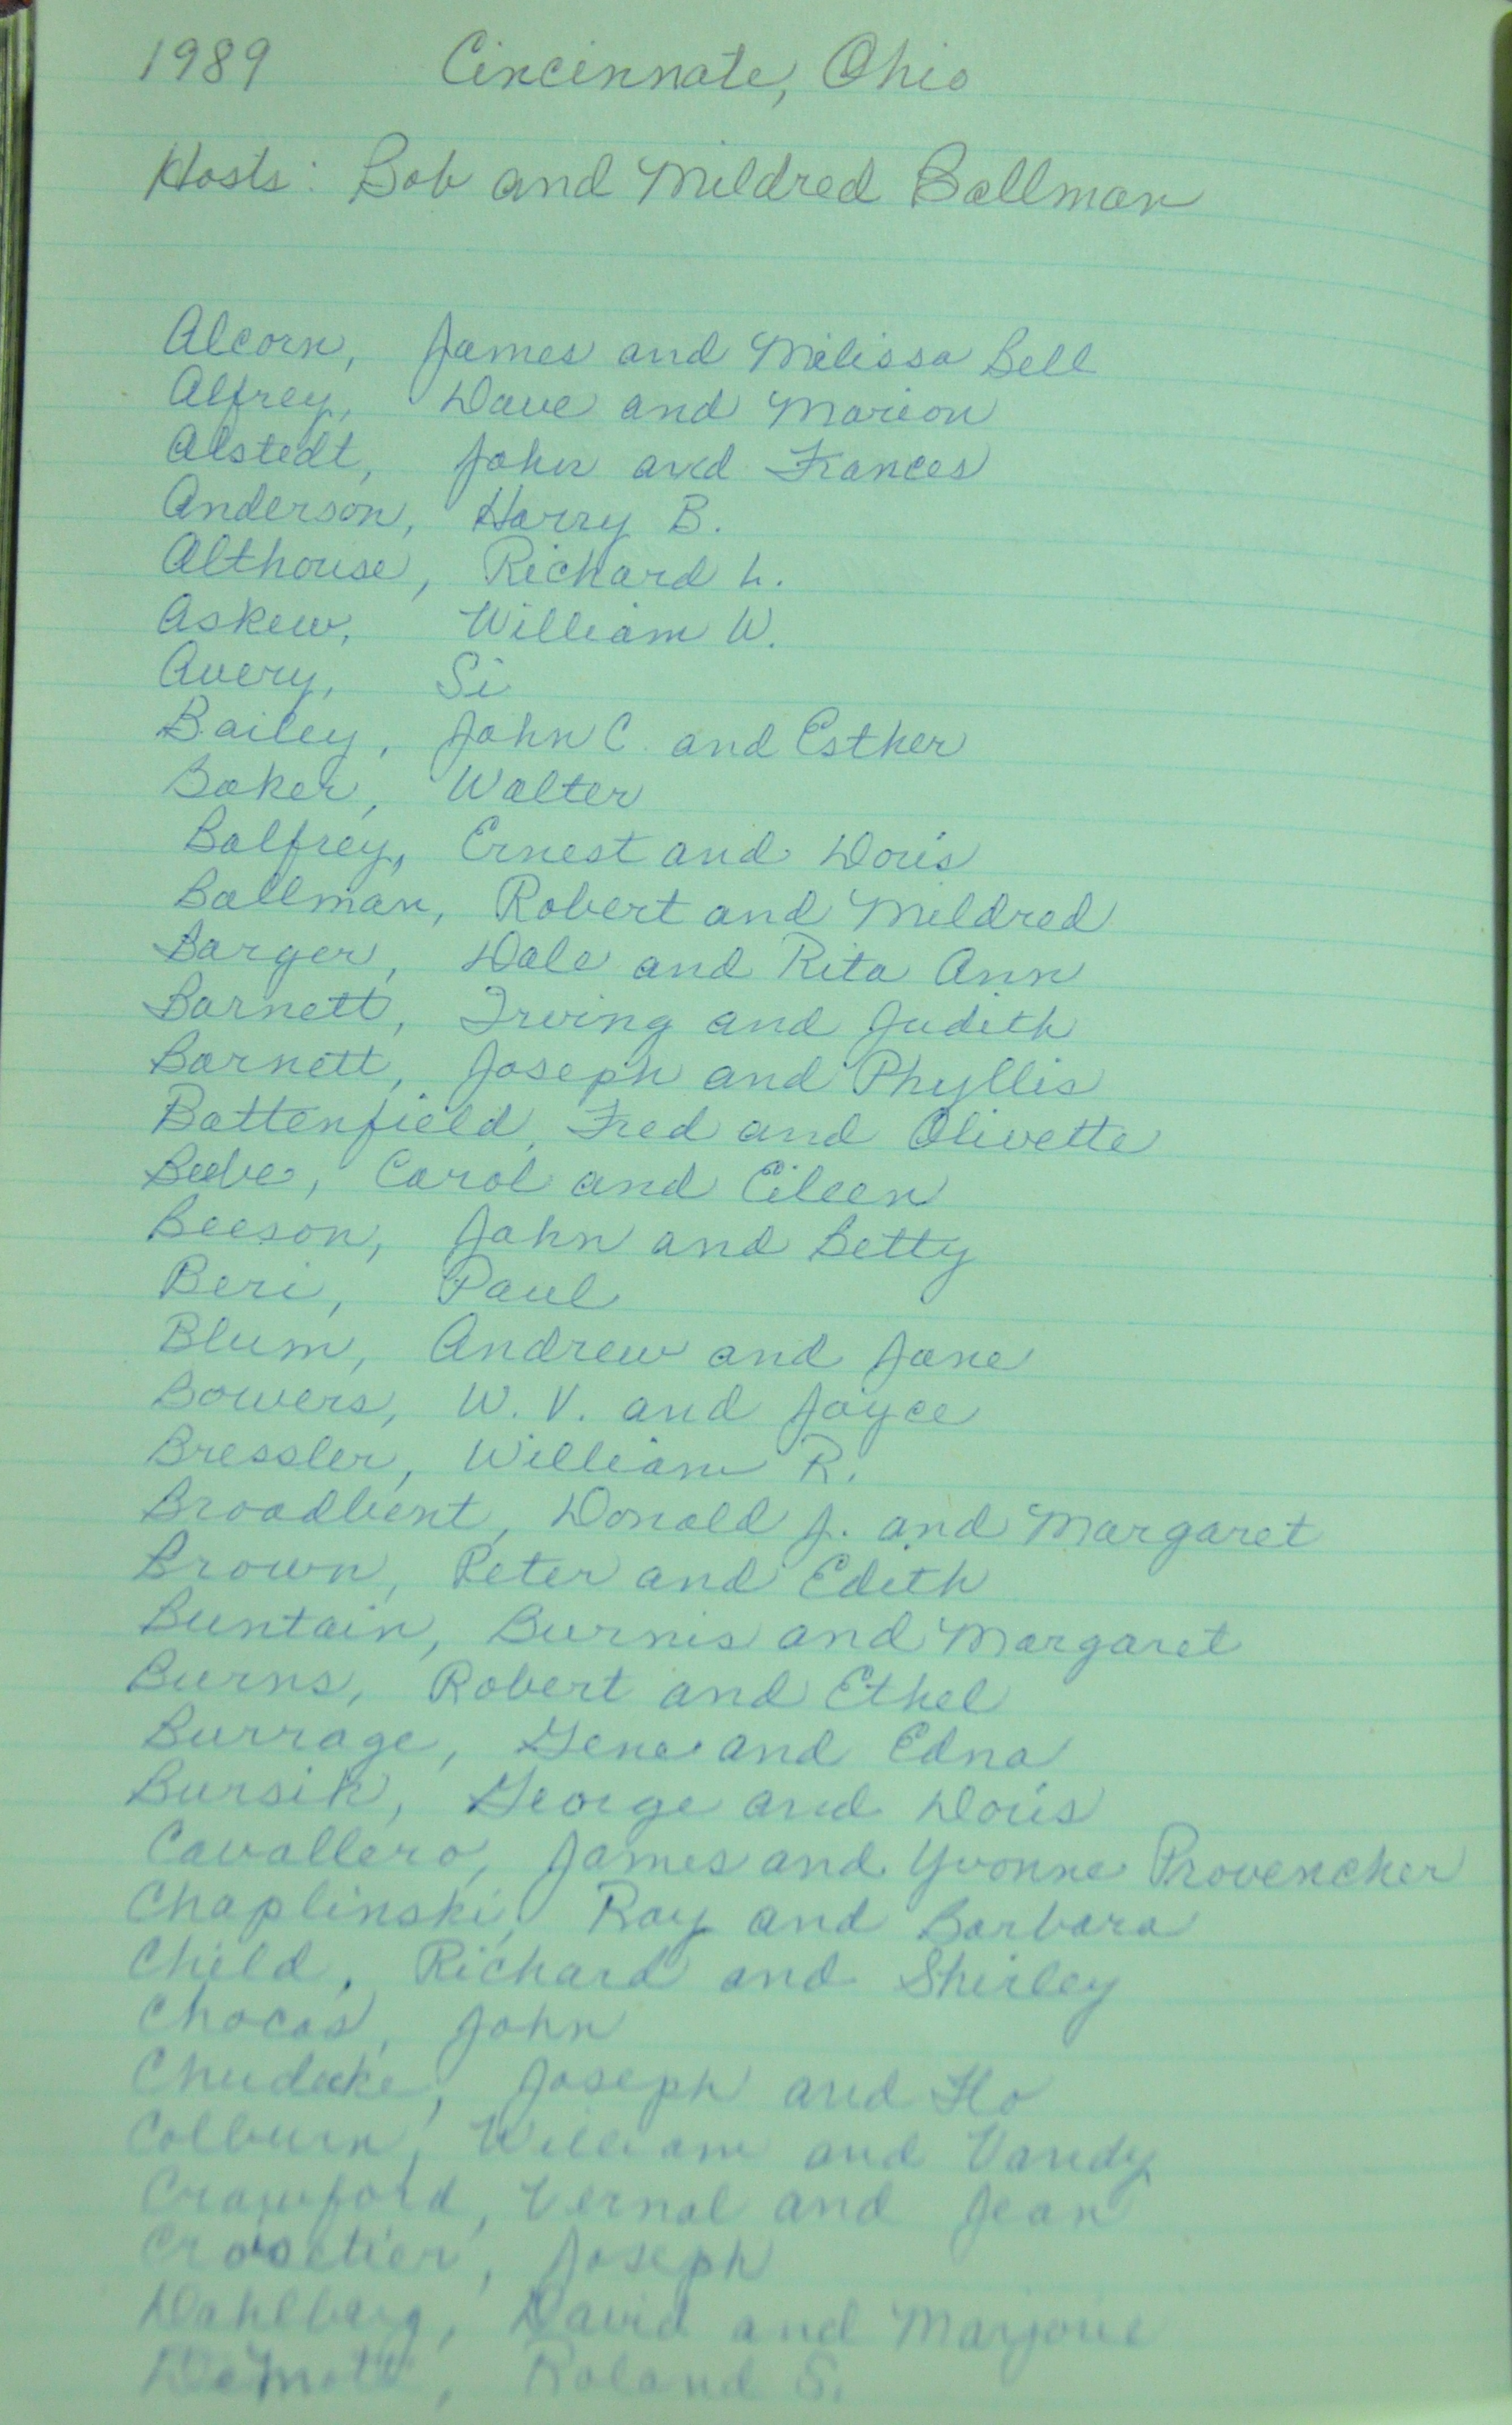 1989 Cincinnate, Ohio
Hosts: Bob and Mildred Ballman
Alcorn, James and Melissa Bell
Alfrey, Dave and Marion
Alstedt, John and Frances
Anderson, Harry B.
Althouse, Richard L.
Askew, William W.
Avery, Si
Bailey, John C. and Esther
Baker, Walter
Balfrey, Ernest and Doris
Ballman, Robert and Mildred
Barger, Dale and Rita Ann
Barnett, Irving and Judith
Barnett, Joseph and Phyllis
Battenfield, Fred and Olivette
Beebe, Carol and Eileen
Beeson, John and Betty
Beri, Paul
Blum, Andrew and Jane
Bowers, W. V. and Joyce
Bressler, William R.
Broadbent, Donald J. and Margaret
Brown, Peter and Edith
Buntain, Burnis and Margaret
Burns, Robert and Ethel
Burrage, Gene and Edna
Bursik, George and Doris
Cavallero, James and Yvonne Provencher
Chaplinski, Ray and Barbara
Child, Richard and Shirley
Chocas, John
Joseph and Flo
Colburn, William and Vandy
Crawford, Vernal and Jean
Joseph
Dahlberg, David and Marjorie
DeMott, Roland S.